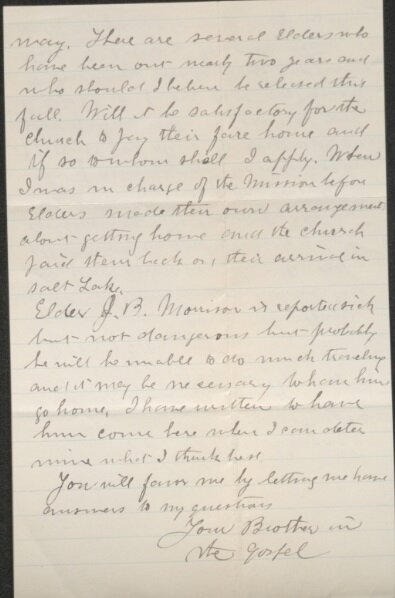 way. There are several Elders who
have been out nearly two years and
who should I believe be released this
fall. Will it be satisfactory for the
Church to pay their fare home and
if so to whom shall I apply. When
I was in charge of the Mission before
Elders made their own arrangement
about getting home and the church
paid them back on their arrival in
Salt Lake.
Elder J. B. Morrison is reported sick
but not dangerous but probably
he will be unable to do much traveling
and it may be necessary to have him
go home, I have written to have
him come here when I can deter
mine what I think best
You will favor me by letting me have
answers to my questions
Your Brother in
the Gospel